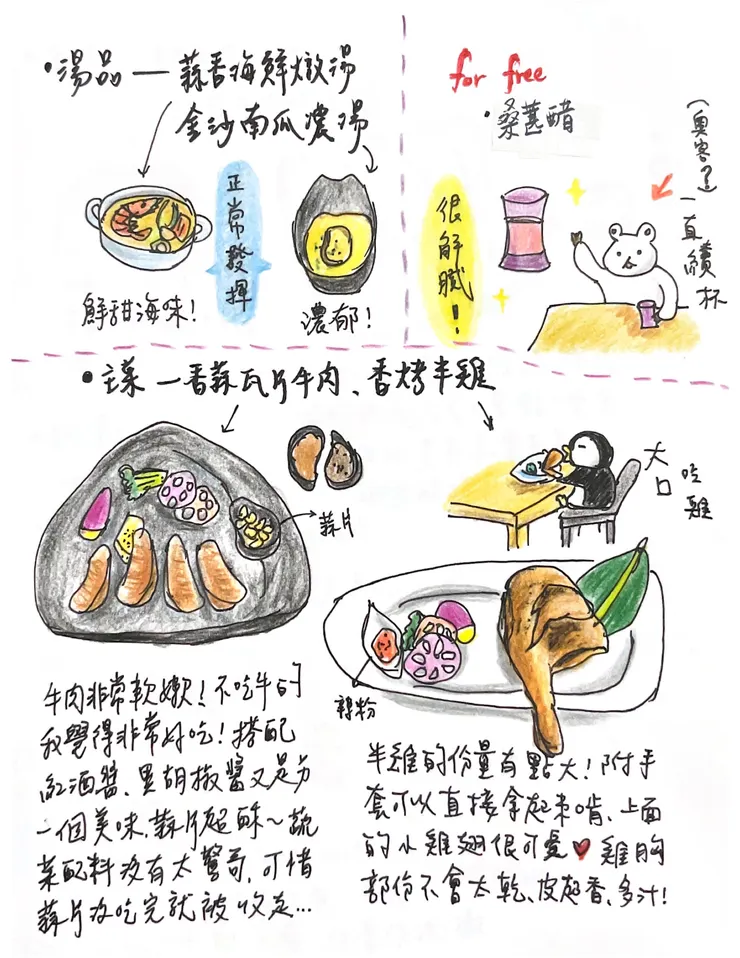 •湯品—蒜香海鮮燉湯
金沙南瓜濃湯
正常發揮
鮮甜海味!
濃郁!
for free
•桑葚醋
很解膩!
(奧客了)
一直續杯
•主菜—香蒜瓦片牛肉、香烤半雞
蒜片
大口
吃雞
辣粉
牛肉非常軟嫩!不吃牛的
我覺得非常好吃!搭配
紅酒醬、黑胡椒醬又是另
一個美味,蒜片超酥~蔬
菜配料沒有太驚奇,可惜
蒜片沒吃完就被收走...
半雞的份量有點大!附手
套可以直接拿起來啃,上面
的小雞翅很可愛♥雞胸
部份不會太乾、皮超香、多汁!